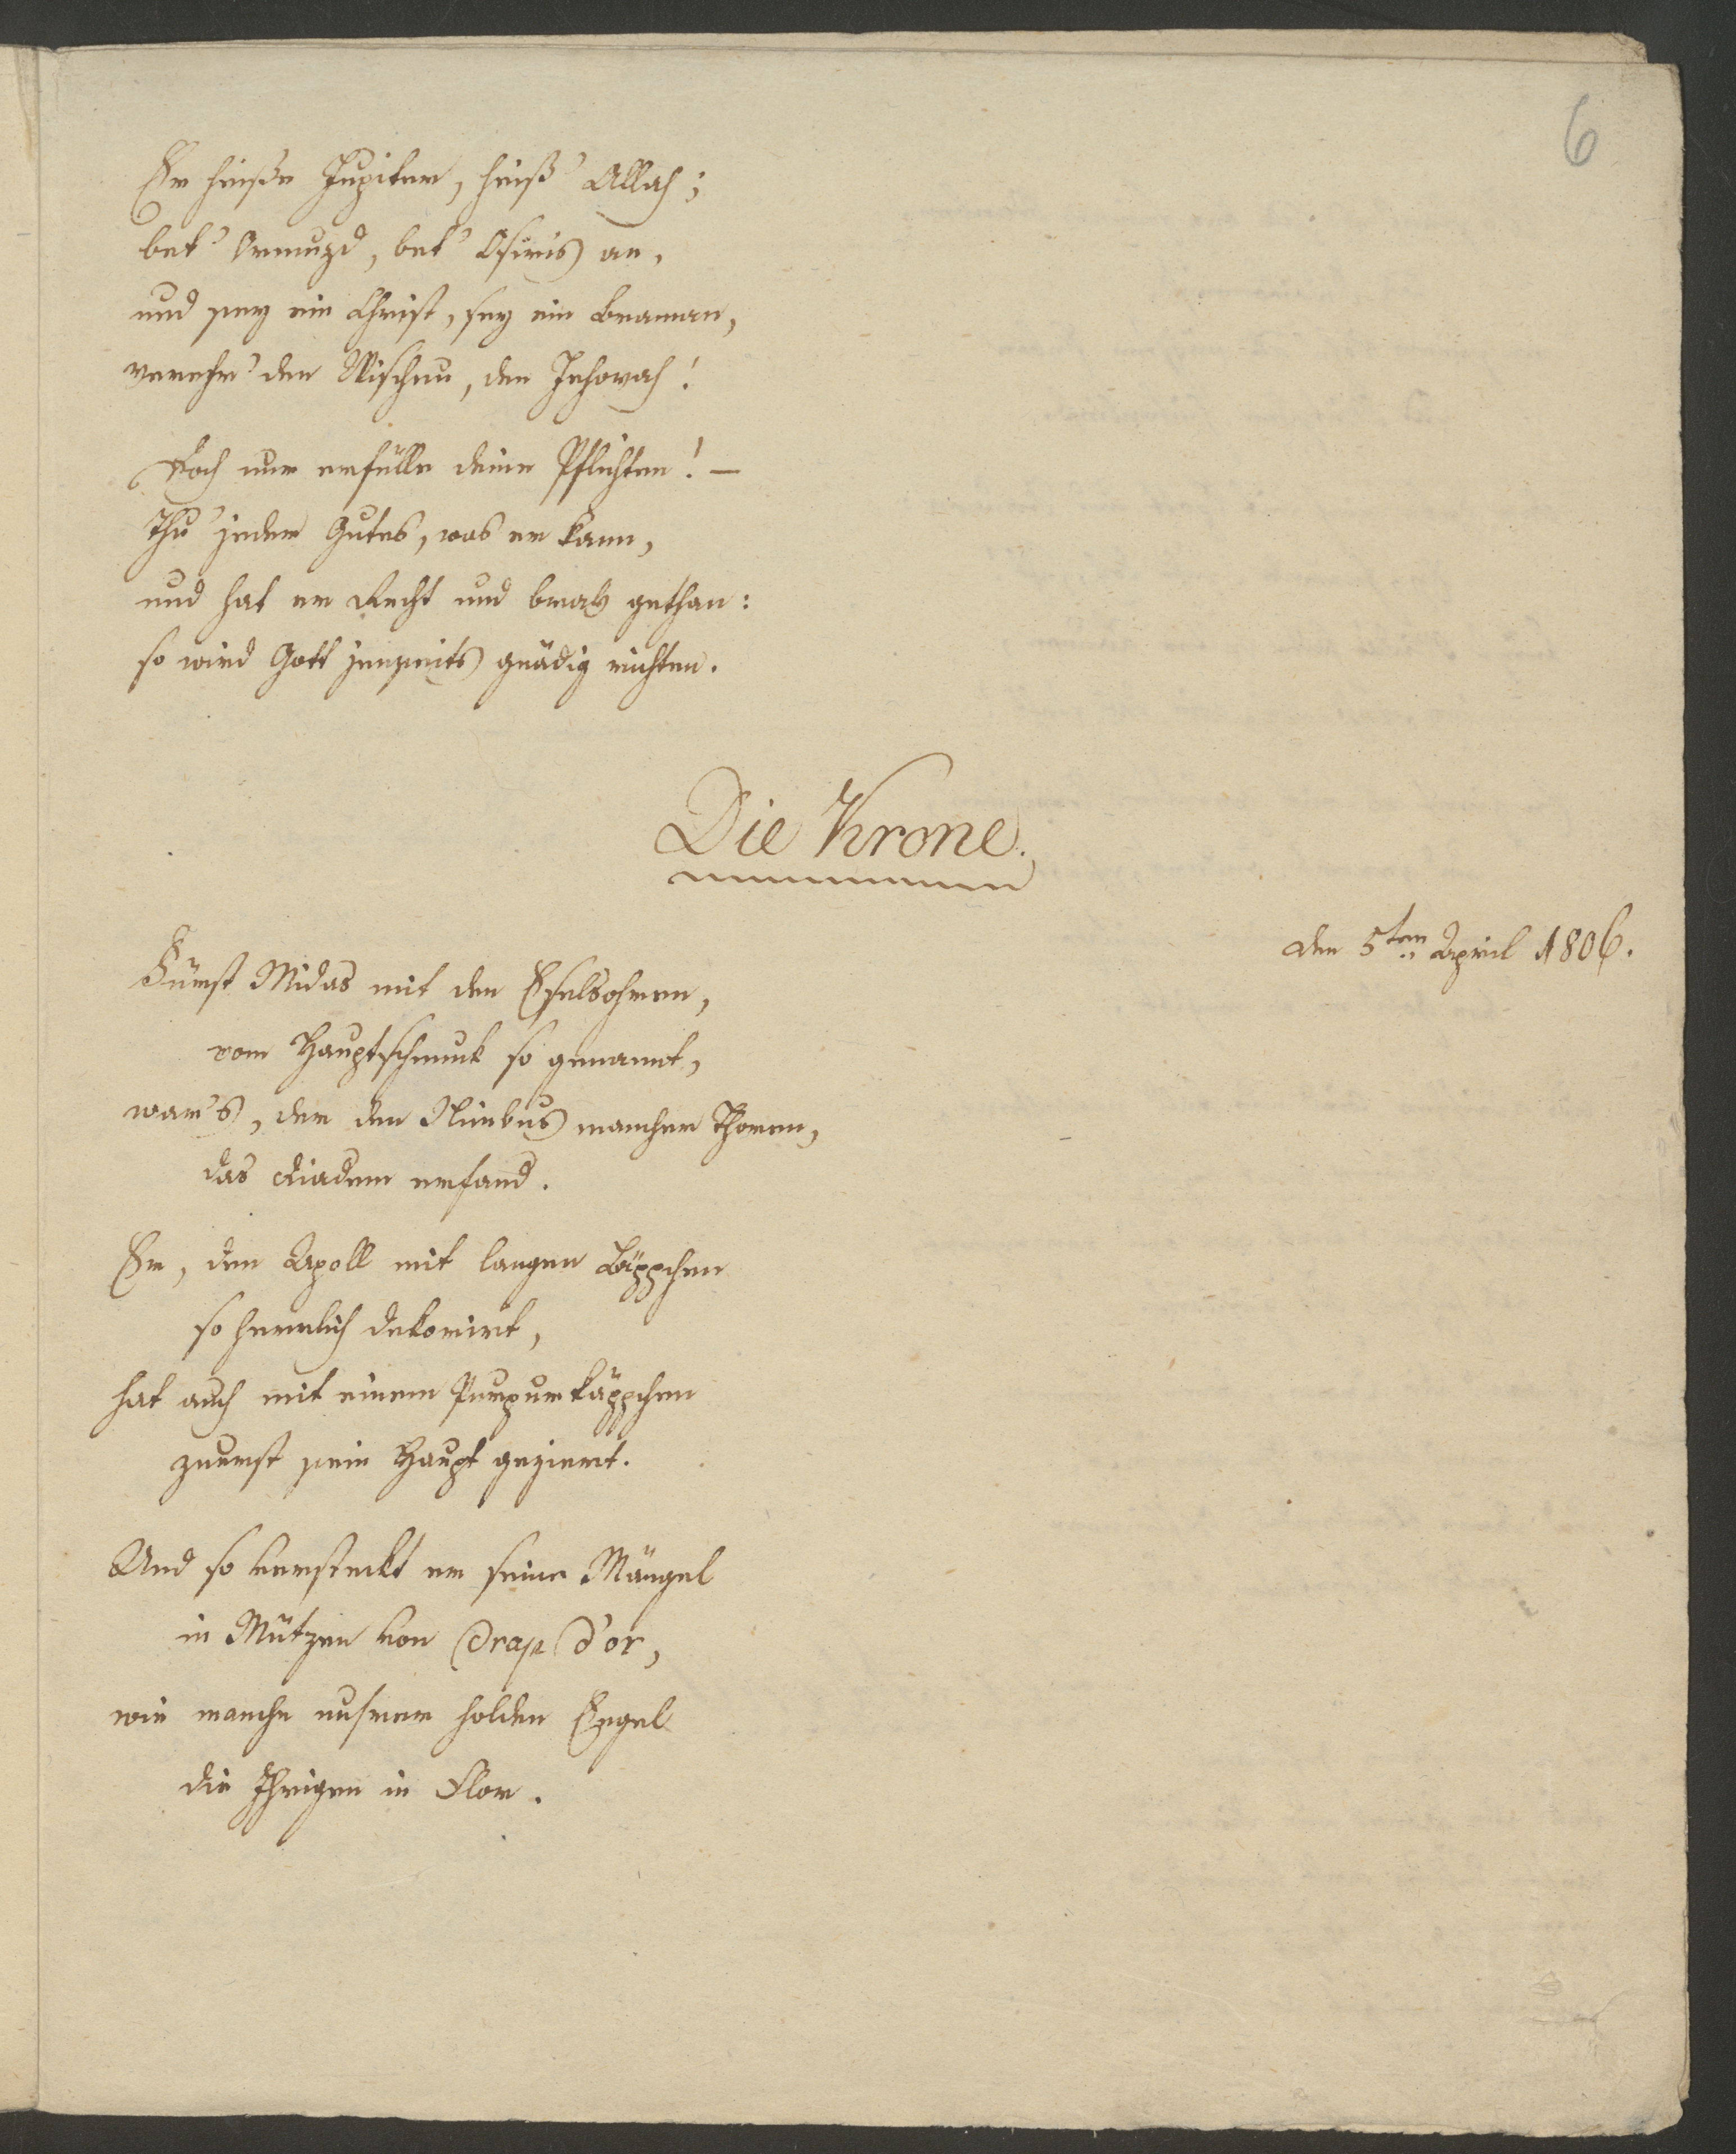 6
Er heiße Jupiter, heiß' Allah;
bet' Ormuzd, bet' Osiris an,
und sey ein Christ, sey ein Braman,
verehr' den Wischnu, den Jehovah!
Doch nur erfülle deine Pflichten! –
Thu' jeder Gutes, was er kann,
und hat er Recht und brav gethan:
so wird Gott jenseits gnädig richten.
Die Krone.
den 5ten April 1806.
Fürst Midas mit den Eselsohren,
vom Hauptschmuck so genannt,
war's, der den Nimbus mancher Thoren,
das Diadem erfand.
Er, den Apoll mit langen Läppchen
so herrlich dekorirt,
hat auch mit einem Purpurkäppchen
zuerst sein Haupt geziert.
Und so versteckt er seine Mängel
in Mützen von Drap d'or,
wie manche unsrer holden Engel
die Ihrigen in Flor.